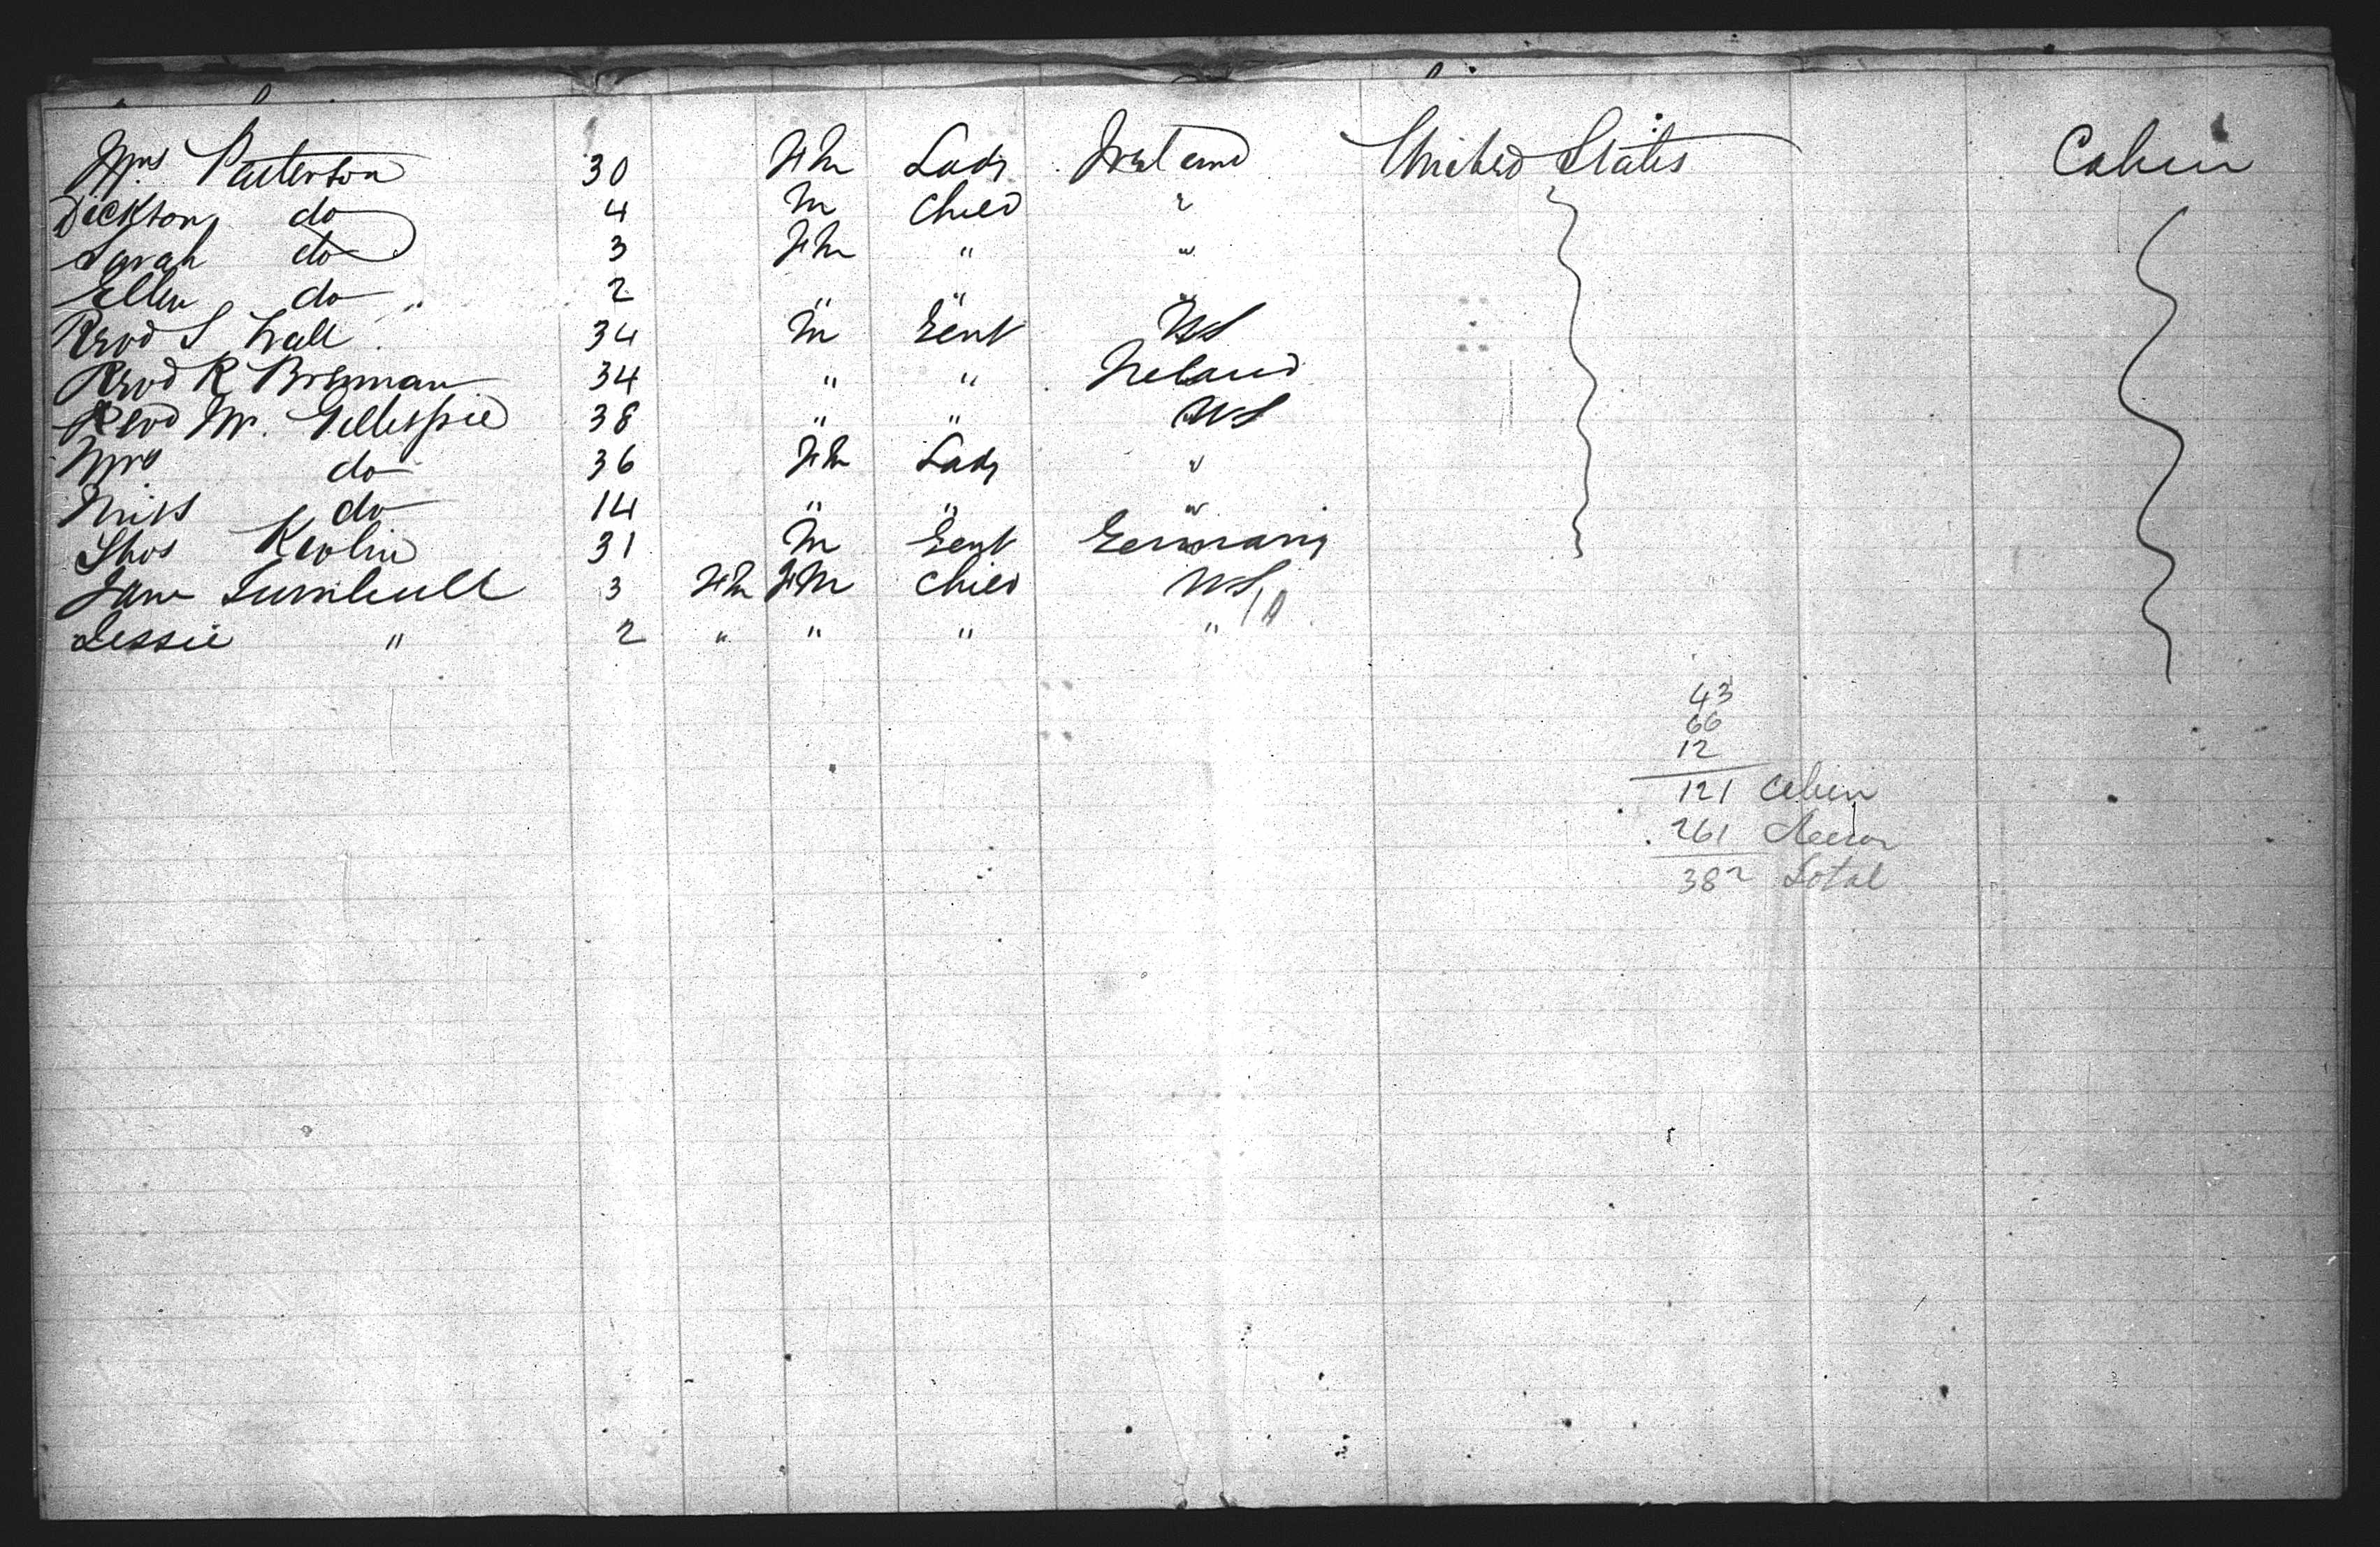 Mrs Patterson 30 Fm Lady Ireland United States Cabin
Dickson do 4 M Child "
Sarah do 3 Fm " "
Ellen do 2 " " "
Revd S Hall 34 M Gent US
Revd R Brennan 34 " " Ireland
Revd Mr. Gillespie 38 " " US
Mrs do 36 Fm Lady "
Miss do 14 " " "
Thos 31 M Gent Germany
Jane Turnbull 3 Fm Fm Child US
Jessie " 2 " " " "
43
66
12
121 Cabin
261
382 Total